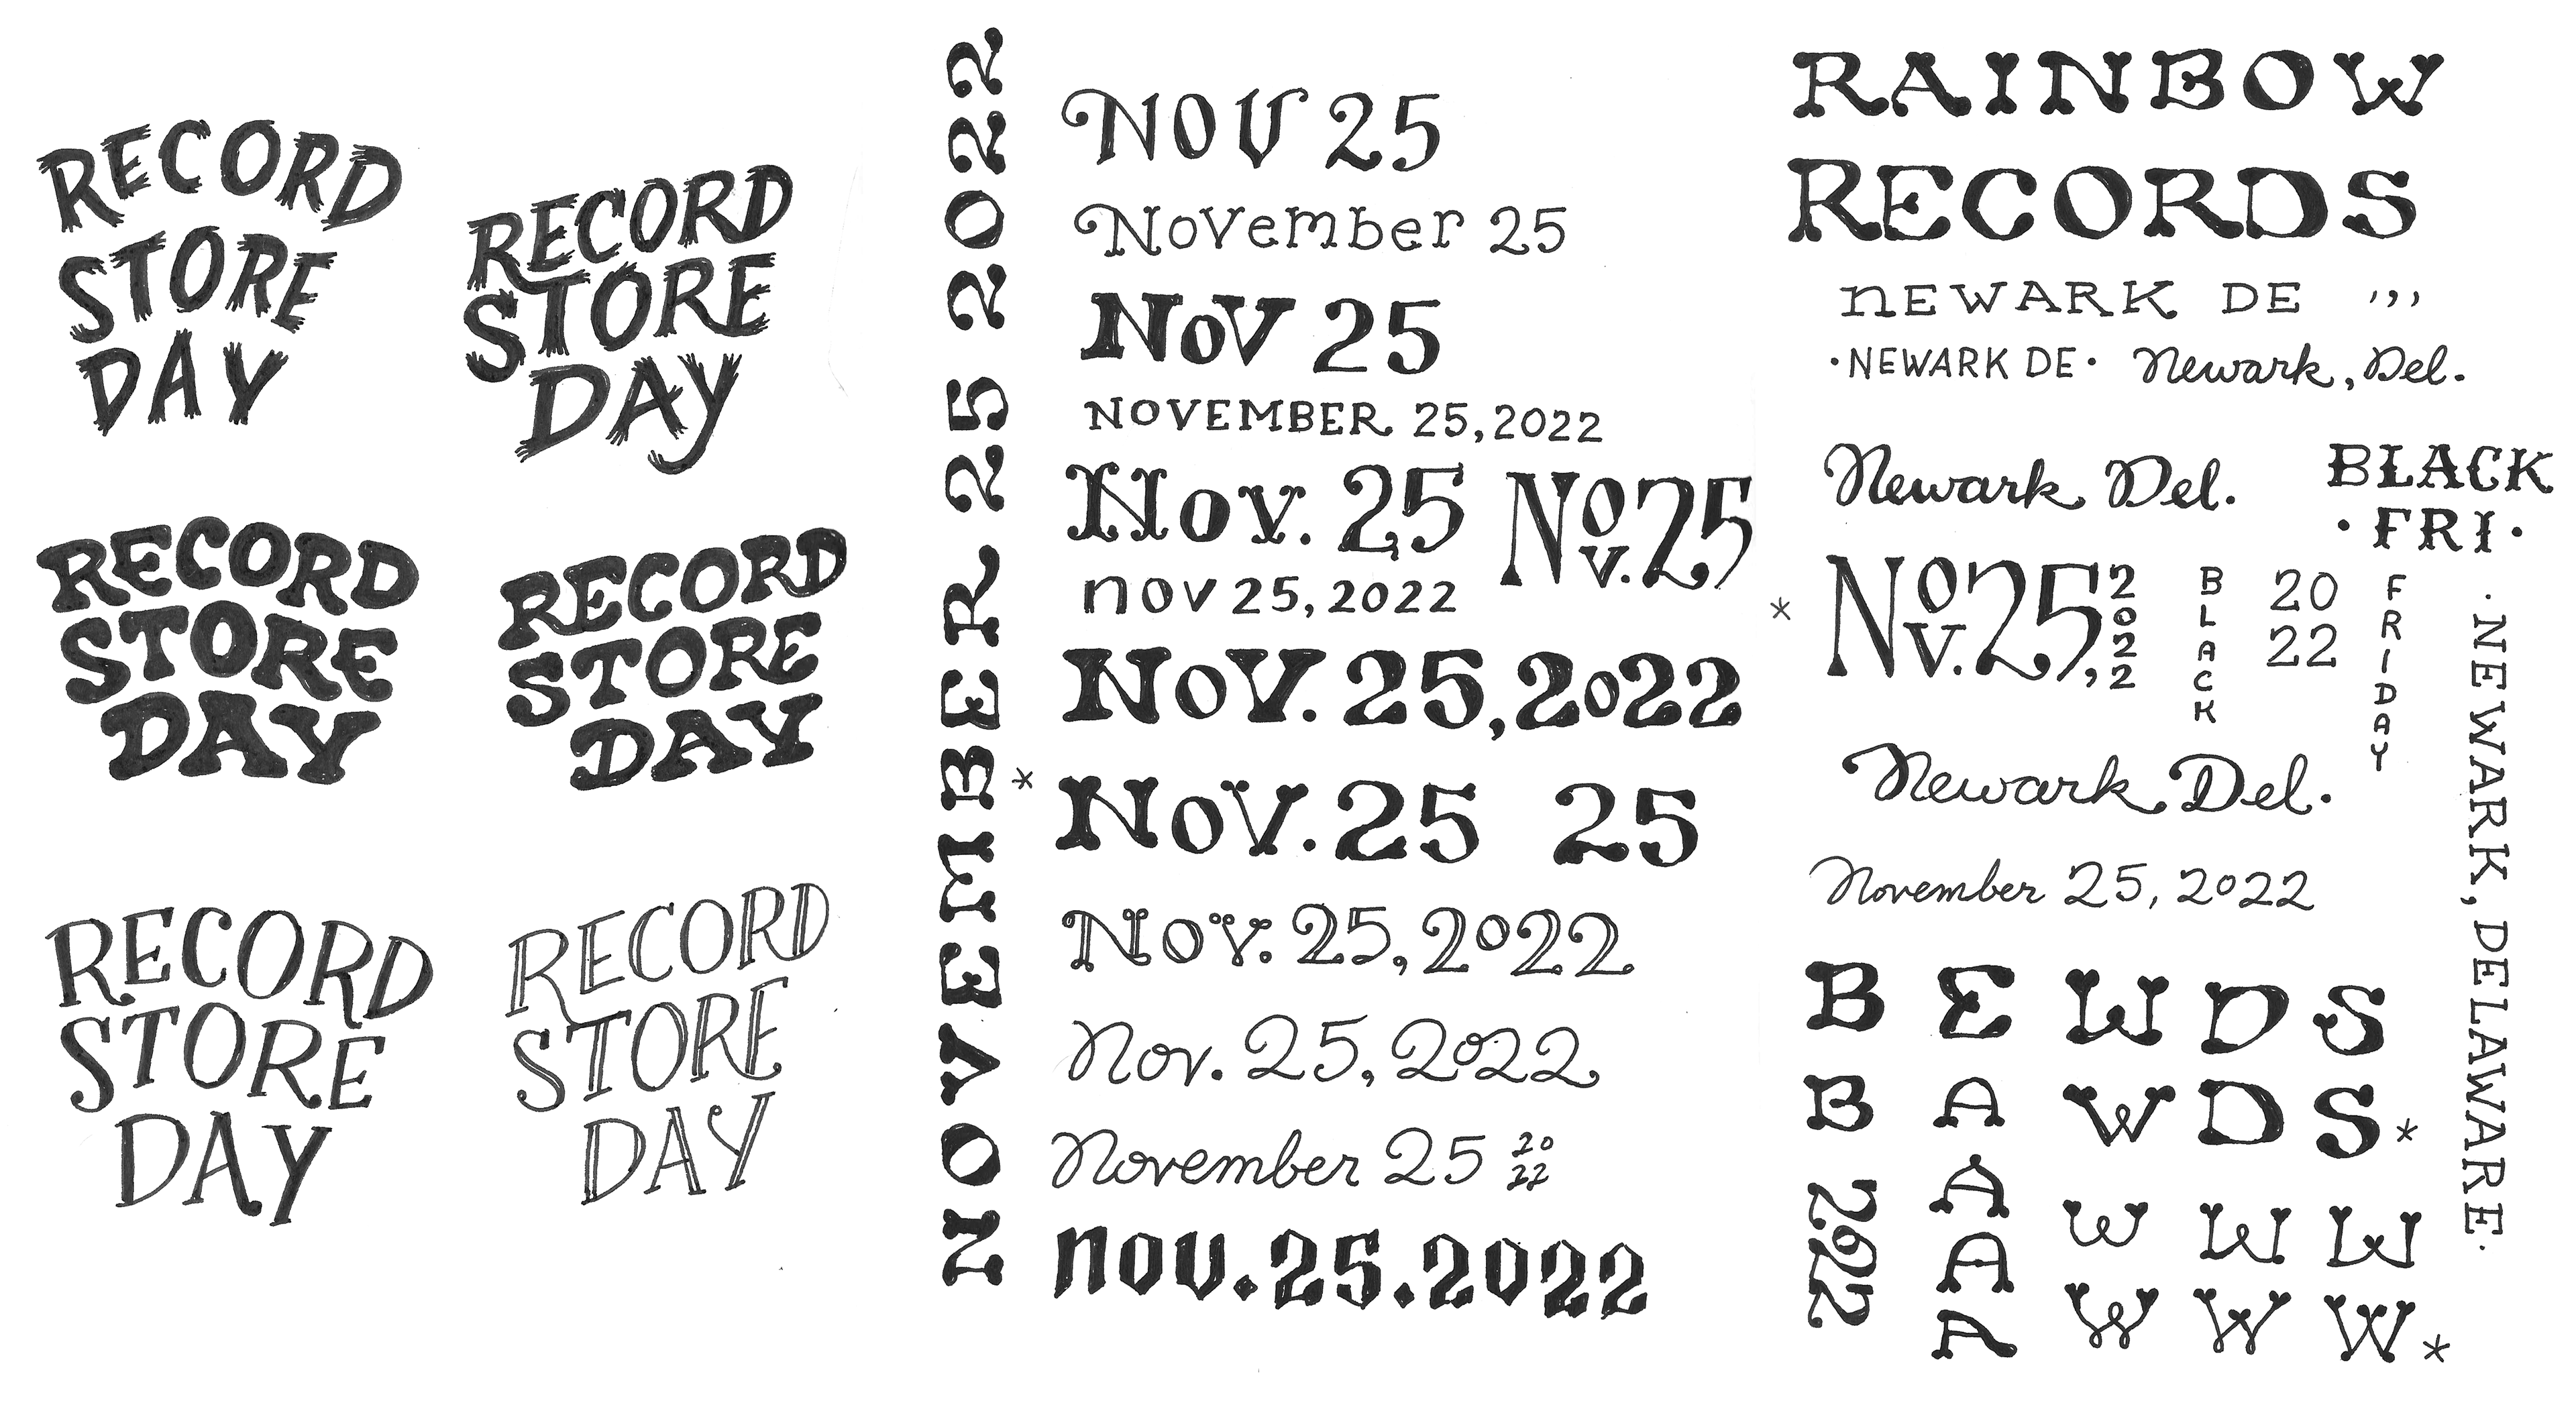 RECORD
STORE
DAY
RECORD
STORE
DAY
RECORD
STORE
DAY
RECORD
STORE
DAY
RECORD
STORE
DAY
RECORD
STORE
DAY
NOVEMBER 25 2022
NOV 25
November 25
NoV 25
NOVEMBER 25,2022
Nov. 25
Nov.25
nov 25, 2022
NoV. 25,2022
*
NoV. 25 25
Nov. 25, 2022
Nov. 25, 2022
November 25 2022
nov.25.2022
RAINBOW
RECORDS
nEWARK DE ,,,
·NEWARK DE· Newark, Del.
Newark Del.
BLACK
·FRI·
*
Nov.25,2022
BLACK
20
22
FRIDAY
·NEWARK, DELAWARE·
Newark Del.
November 25, 2022
B E W D S
B A W D S *
2022
A
W W W
A
A
W W W *